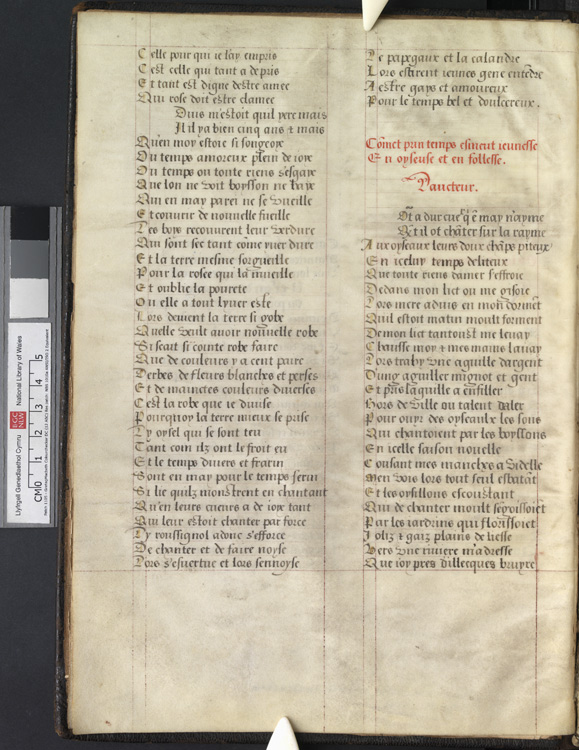 Celle pour qui ie lay empris
C est celle qui tant a de pris
E t tant est digne destre amee
Qui rose doit estre clamee
Duis m'estoit quil yere mais
Il il ya bien cinq ans & mais
Quen may estoie si songeoye
Du temps amoreux plein de ioye
Du temps ou toute riens sesgaye
Que lon ne voit boysson ne haye
Qui en may parer ne se vueille
E t couurir de nouuelle fueille
Les boys recouurent leur verdure
Qui sont sec tant come yuer dure
E t la terre mesme sorgueille
Pour la rosee qui la mueille
E t oublie la pourete
Ou elle a tout lyuer este
Lors deuient la terre si gobe
Quelle veult auoir nouuelle robe
Si scart si counte robe faire
Que de couleurs y a cent paire
Derbes de fleurs blanches et perses
E t de maintes couleurs diuerses
C est la robe que ie diuise
Pourquoy la terre mieux se prise
Ly oysel qui se sont teu
Tant com ilz ont le froit eu
E t le temps diuers et frarin
Sont en may pour le temps serin
Si lie quilz monstrent en chantant
Qu'en leurs cueurs a de ioye tant
Qui leur estoit chanter par force
Ly roussignol adonc s'efforce
De chanter et de faire noyse
Lors s'esuertue et lors senuoyse
Le papegaux et la calandre
Lors estirent iennes gene entedre
A estre gays et amoureux
Pour le temps bel et doulcereux.
Comet p un temps esmeut ieunesse
E n oyseuse et en follesse.
Laucteur.
Mlt a dur cuer q e may n'ayme
Qt il ot chater sur la rayme
Aux oyseaux leurs doux chaps piteux
E n icelluy temps deliteux
Que toute riens damer s'effroie
Dedans mon lict ou me gisoie
Lors mere aduis en mon dormat
Quil estoit matin moult forment
De mon lict tantoust me leuay
Chausse moy & mes mains lauay
Lors traby vne aguille dargent
D'ung aguiller mignot et gent
E t pris laguille a enfiller
Hors de ville ou talent daler
Pour ouyr des oyseaulx les sons
Qui chantoient par les boyssons
E n icelle saison nouelle
Cousant mes manches a videlle
Men vois lors tout seul esbatat
E t les oysillons escoustant
Qui de chanter moult sgoissoiet
Par les iardins qui florissoiet
Joliz & gaiz plains de liesse
Vers vne riuiere m'adresse
Que ioy pres d'illecques bruyre
Llyfrgell Genedlaethol Cymru National Library of Wales
LLGC NLW
CM 0 1 2 3 4 5